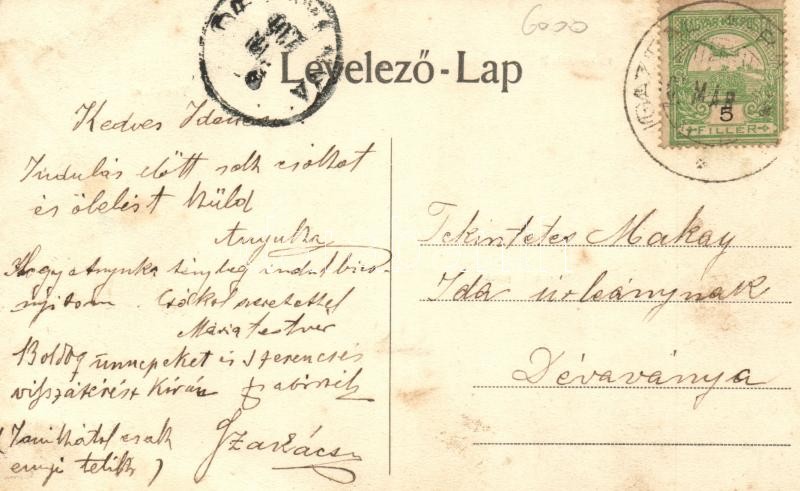 6000
Levelező-Lap
MAGYAR KIR. POSTA
MÁR
5
FILLER
Kedves
Indulás előtt sok csókot
és ölelést küld
Anyuka
Hogy Anyuka tényleg indul bizo-
nyitom. Csókol szeretettel
Mária testvér
Boldog ünnepeket és szerencsés
visszatérést kíván
(Tanitkátol csak
ennyi telik)
Szakács
Tekintetes Makay
Ida úrleánynak
Dévaványa